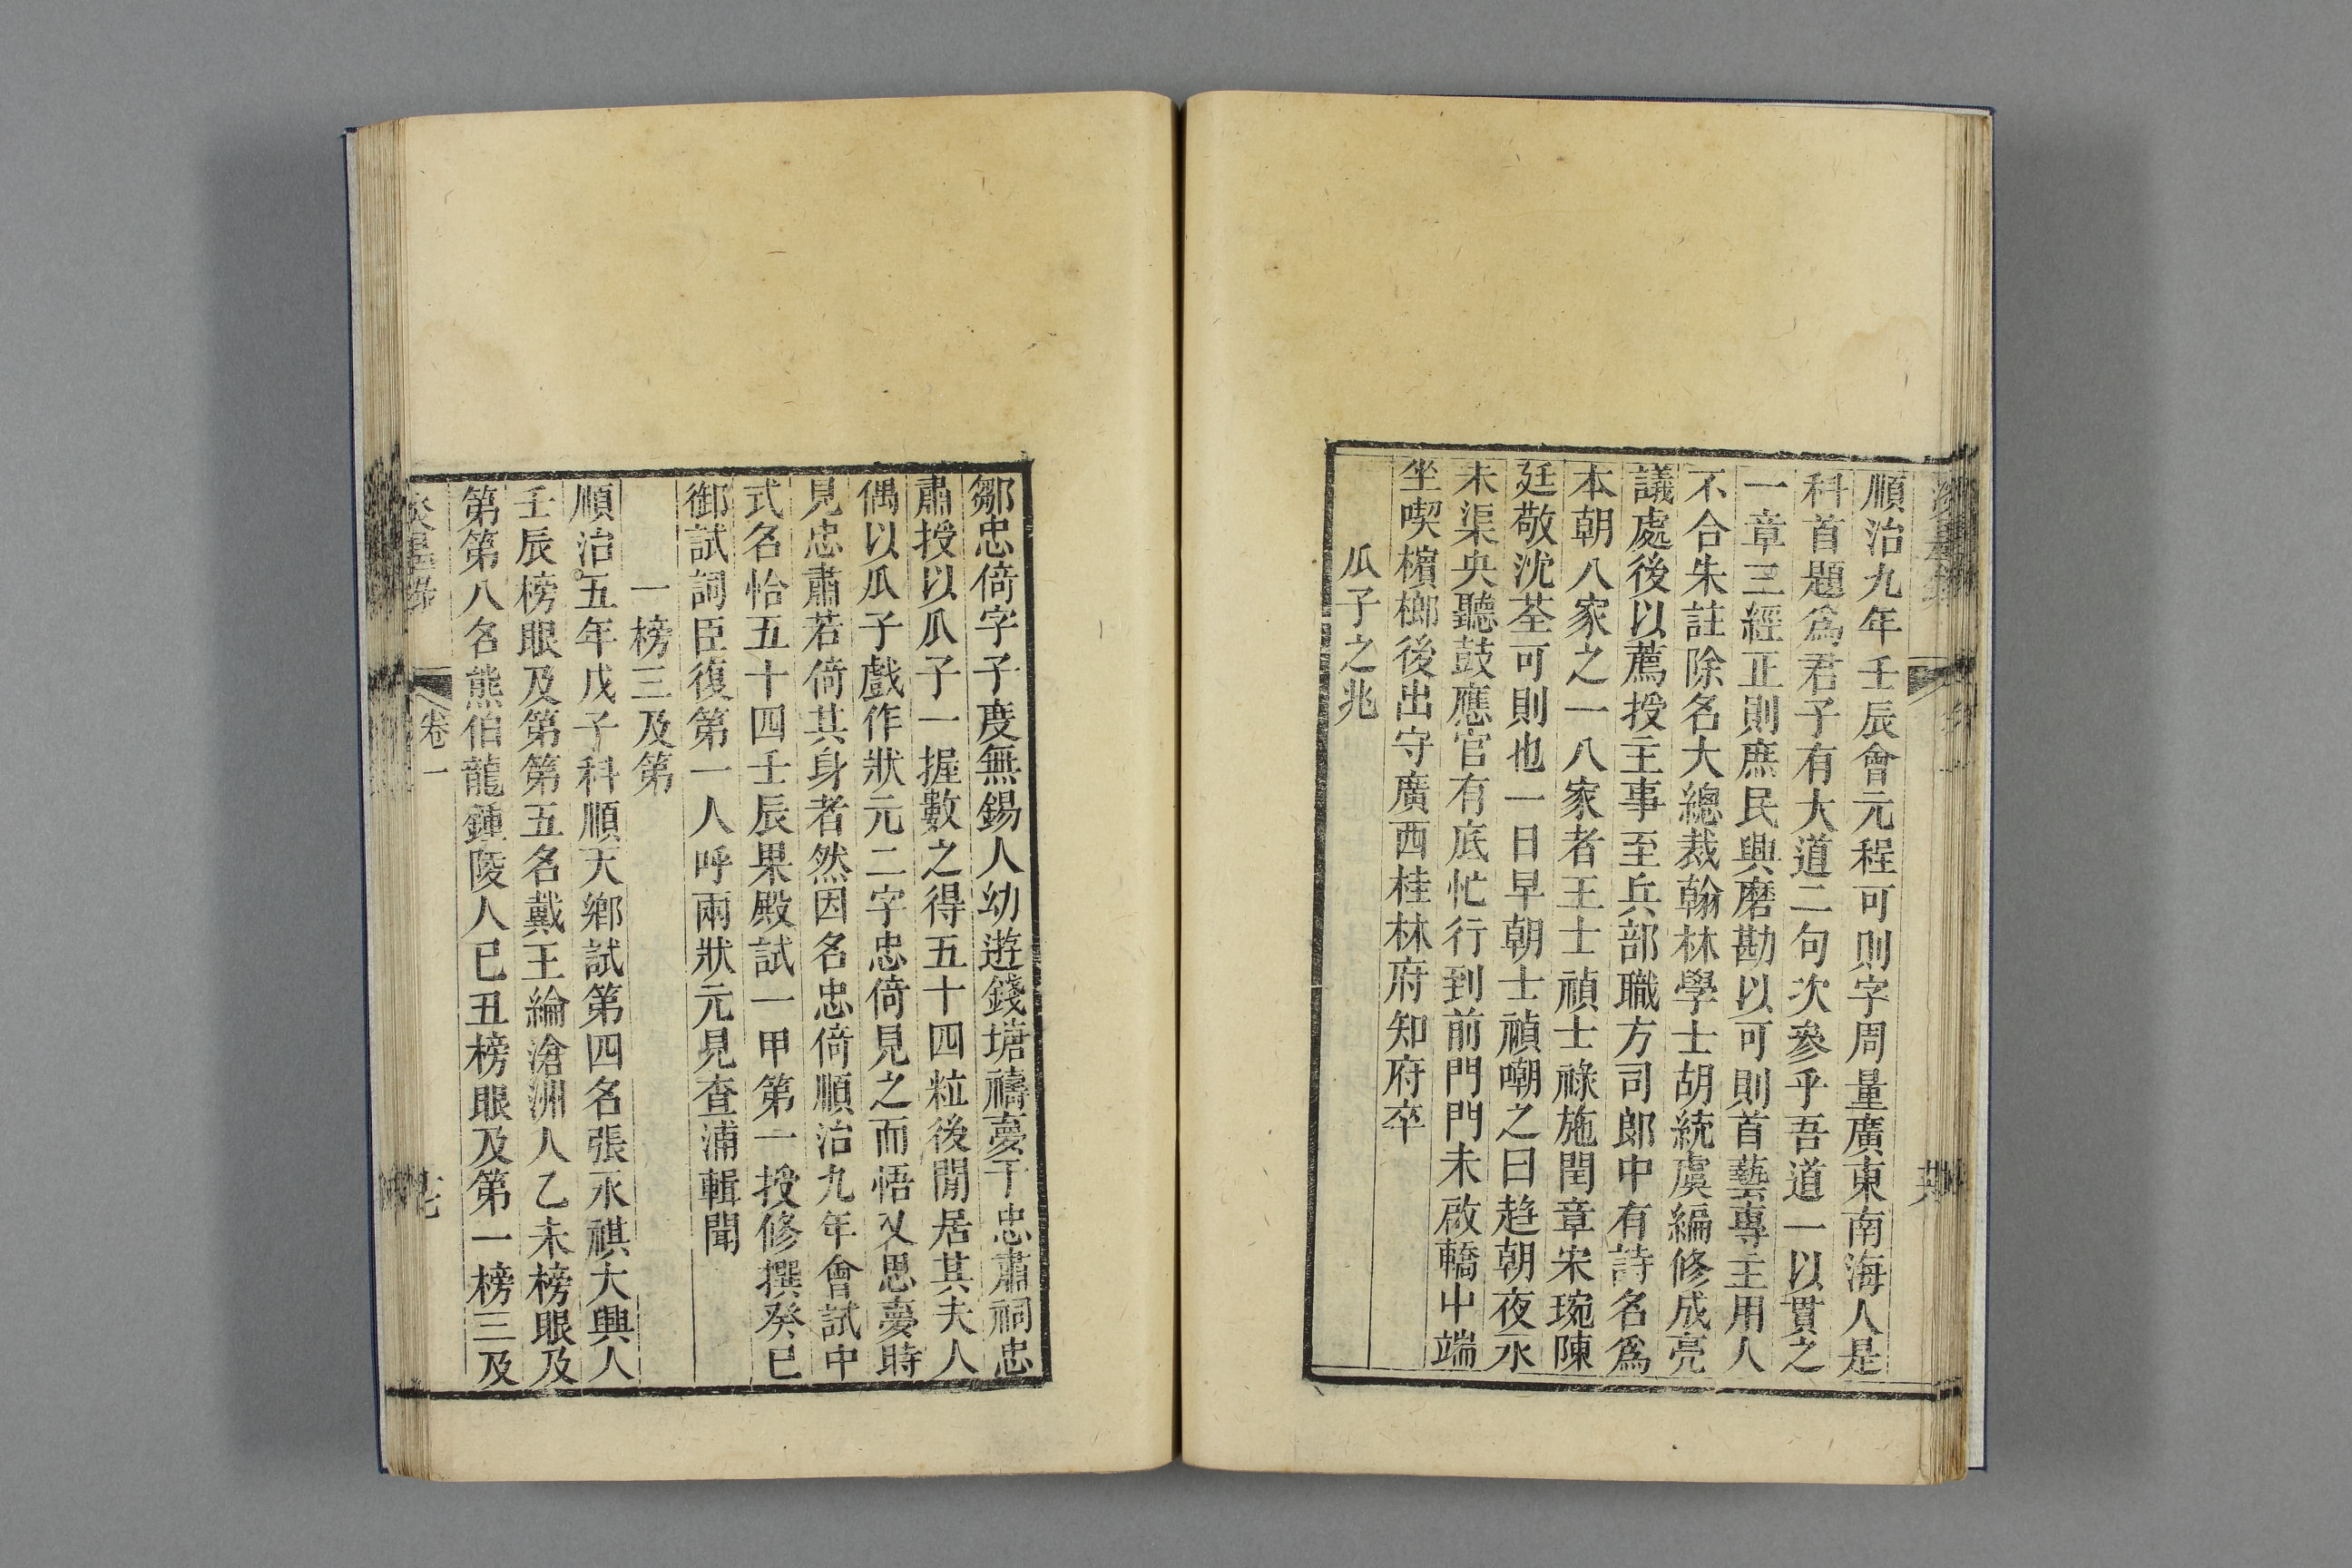 順治九年壬辰會元程可則字周量廣東南海人是
科首題爲君子有大道二句次參乎吾道一以貫之
一章三經正則庶民興磨勘以可則首藝專主用人
不合朱註除名大總裁翰林學士胡統虞編修成亮
議處後以薦授主事至兵部職方司郎中有詩名爲
本朝八家之一八家者王士禎士祿施閏章宋琬陳
廷敬沈荃可則也一日早朝士禎嘲之曰趋朝夜永
未渠央聽鼓應官有底忙行到前門門未啟轎中端
坐喫檳榔後出守廣西桂林府知府卒
瓜子之兆
鄒忠倚字子度無錫人幼遊錢塘禱夢于忠肅祠忠
肅授以瓜子一握數之得五十四粒後閒居其夫人
偶以瓜子戲作狀元二字忠倚見之而悟又思夢時
見忠肅若倚其身者然因名忠倚順治九年會試中
式名恰五十四壬辰果殿試一甲第一授修撰癸巳
御試詞臣復第一人呼兩狀元見查浦輯聞
一榜三及第
順治五年戊子科順天鄉試第四名張永祺大興人
壬辰榜眼及第第五名戴王綸滄洲人乙未榜眼及
第第八名熊伯龍鍾陵人已丑榜眼及第一榜三及
卷一